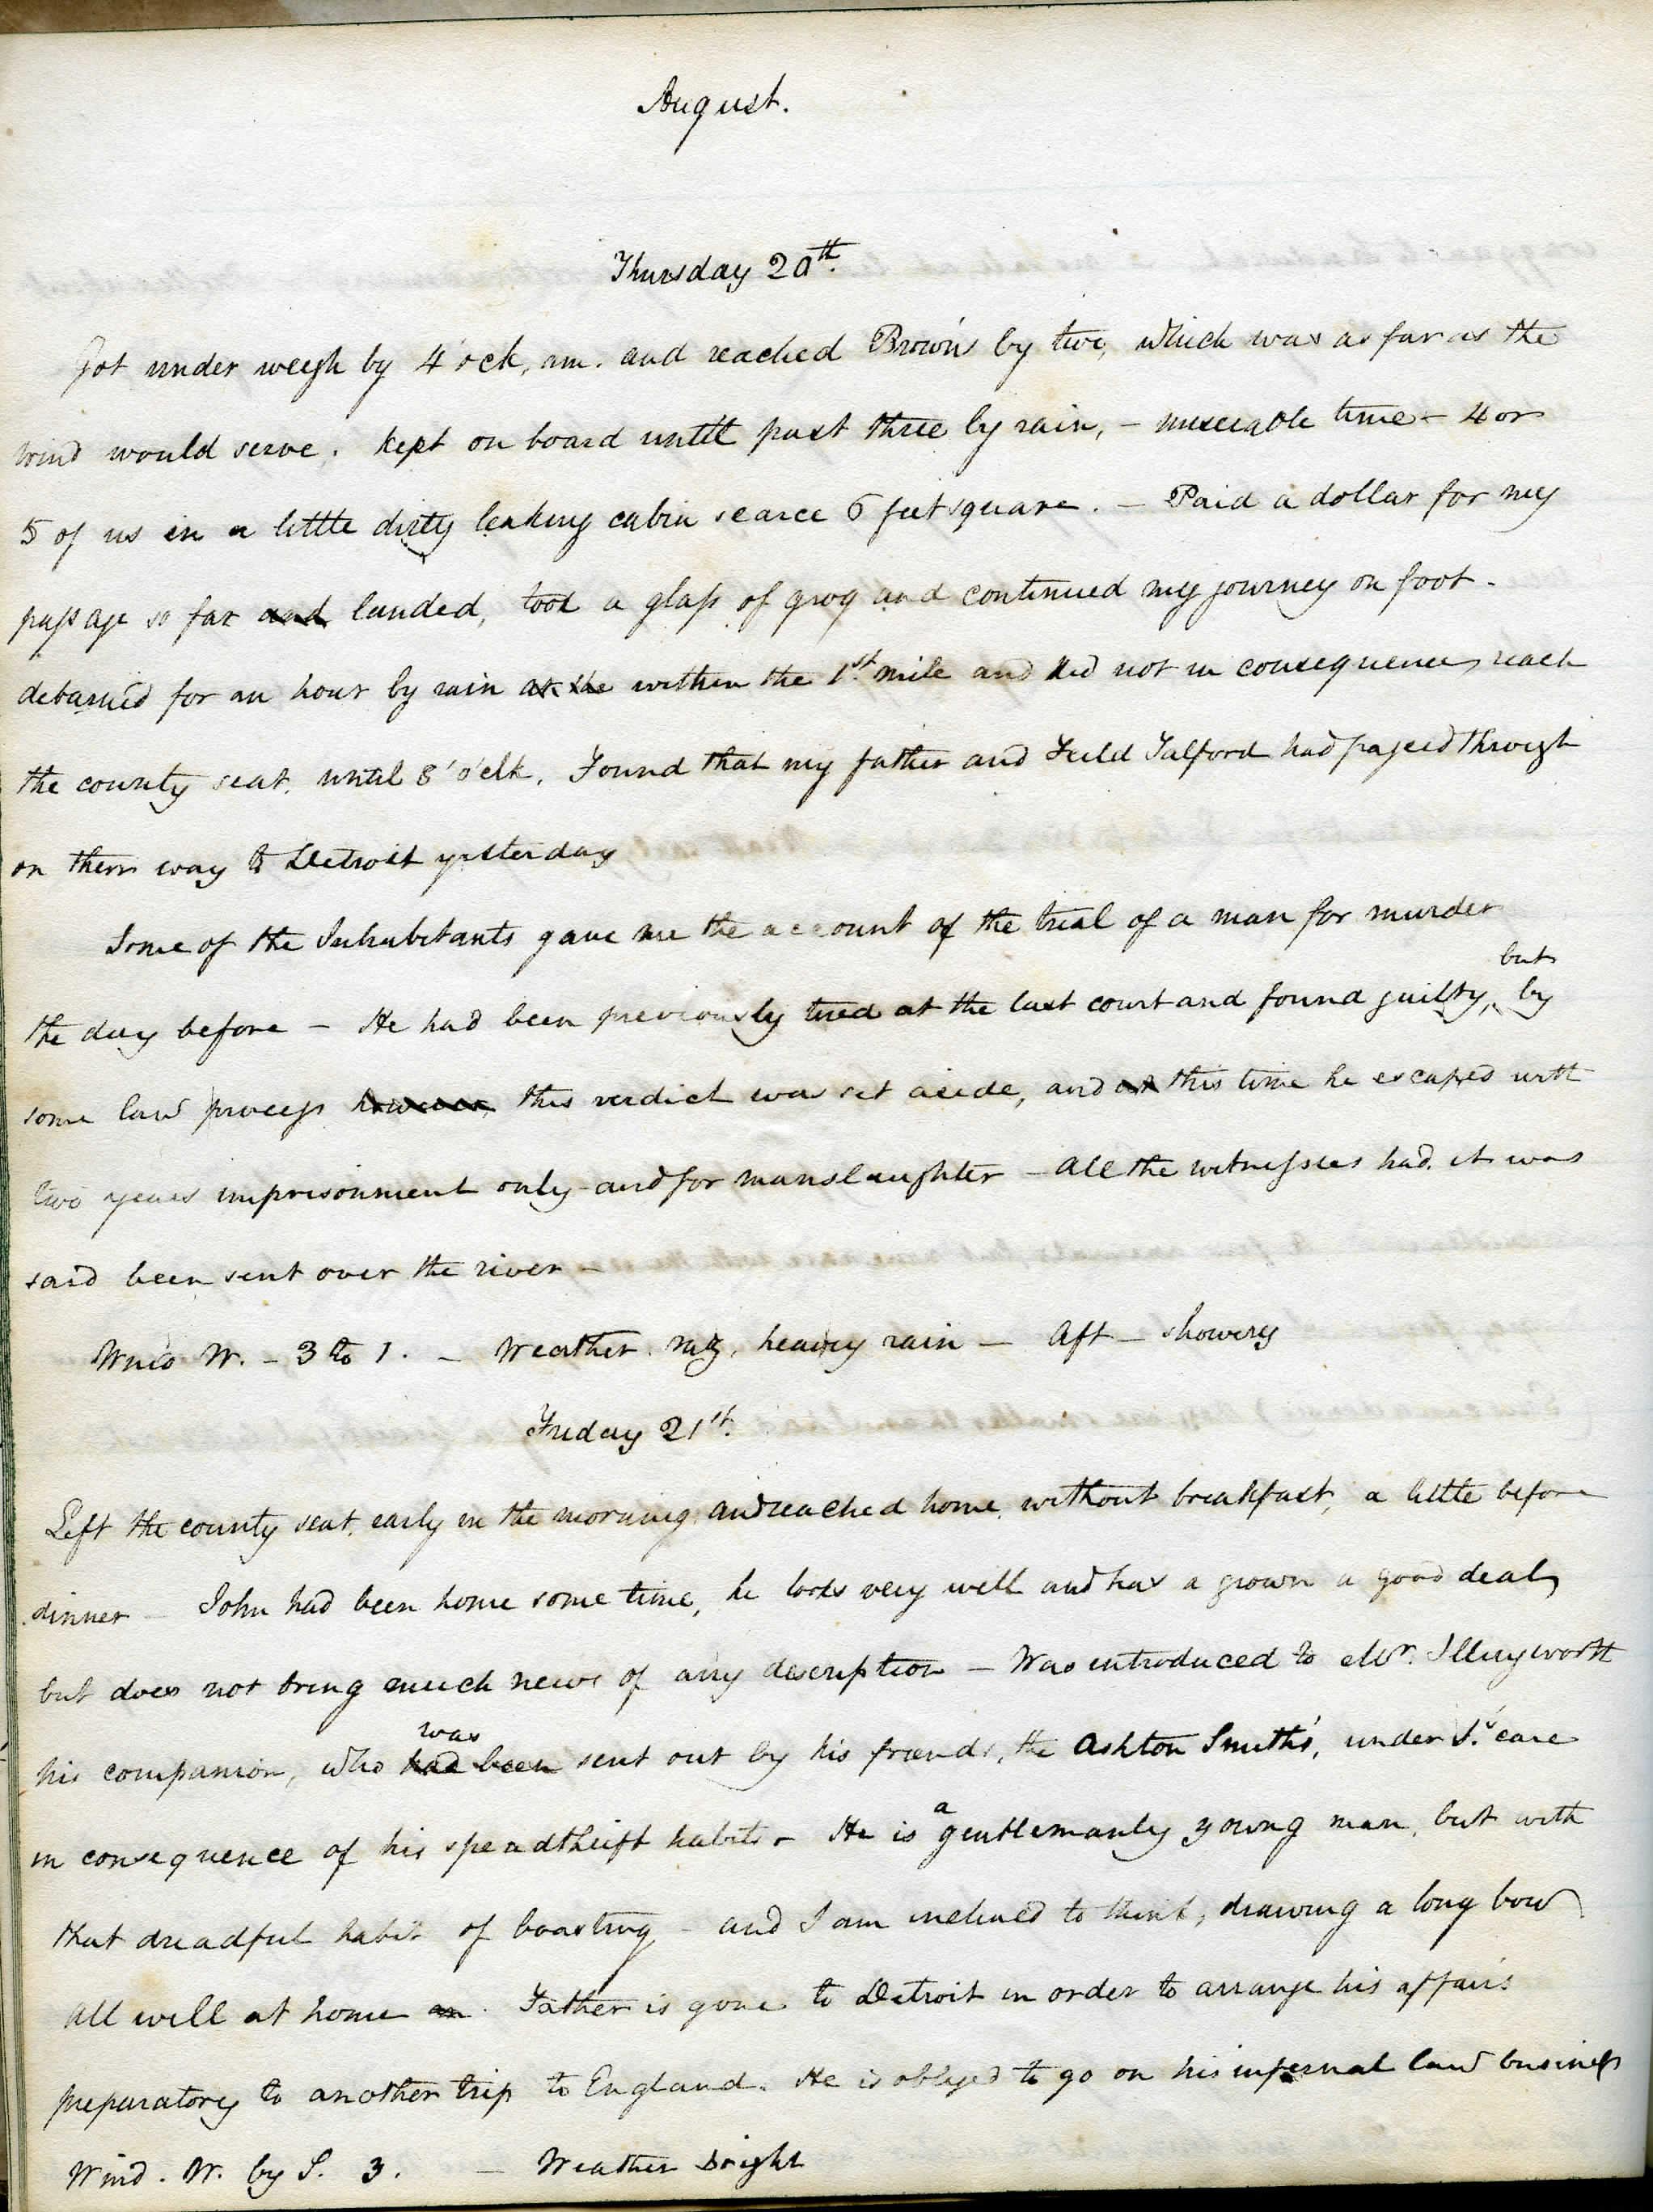 August.
Thursday 20th.
Got under weigh by 4 'ock, am. and reached Brown's by two, which was as far as the
wind would serve. Kept on board until past three by rain, - miserable time - 4 or
5 of us in a little dirty leaking cabin scarce 6 feet square. - Paid a dollar for my
passage so far and landed, took a glass of grog and continued my journey on foot -
debarred for an hour by rain at the within the 1st. mile and did not in consequence, reach
the county seat, until 8 'o'clk. Found that my father and Feild Talford had passed through
on their way to Detroit yesterday
Some of the Inhabitants gave me the account of the trial of a man for murder
the day before - He had been previously tried at the last court and found guilty, but by
some law process however, this verdict was set aside, and at this time he escaped with
two years imprisonment only - and for manslaughter - All the witnesses had, it was
said been sent over the river -
Wind W. - 3 to 1. - Weather. mg, heavy rain - Aft - showery
Friday 21st.
Left the county seat, early in the morning and reached home, without breakfast, a little before
dinner - John had been home some time, he looks very well and has a grown a good deal,
but does not bring much news of any description - Was introduced to Mr. Illingworth
his companion, who had been was sent out by his friends, the Ashton Smith's, under J's care
in consequence of his speadthrift habits - He is a gentlemanly young man, but with
that dreadful habit of boasting - and I am inclined to think, drawing a long bow
All well at home an. Father is gone to Detroit in order to arrange his affairs
preparatory to another trip to England. He is obliged to go on his infernal law business
Wind. W. by S. 3. - Weather Bright